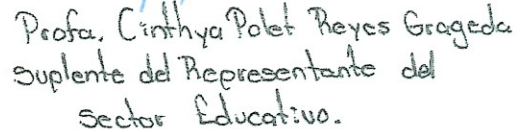 Profa. Cinthya Polet Reyes Grageda
Suplente del Representante del
Sector Educativo.